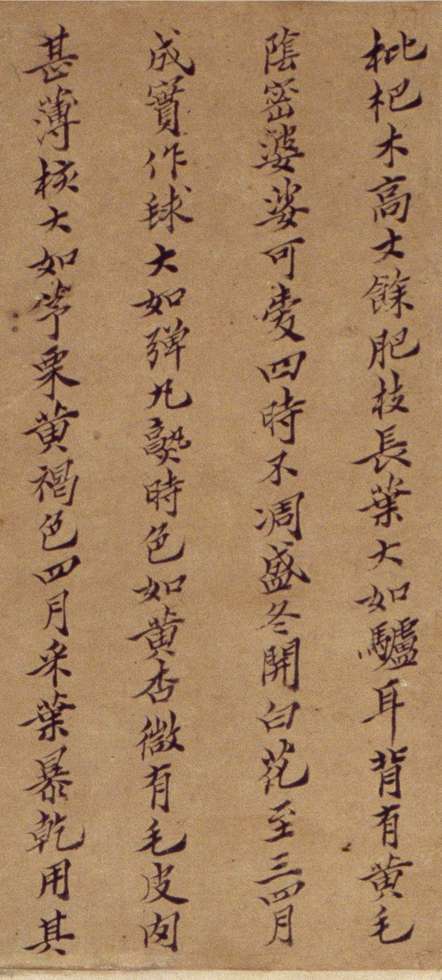 枇杷木高丈餘肥枝長葉大如驢耳背有黄毛
陰密婆娑可愛四時不凋盛冬開白花至三四月
成實作毬大如弹丸熟時色如黄杏微有毛皮肉
甚薄核大如茅栗黄褐色四月采葉暴乾用其